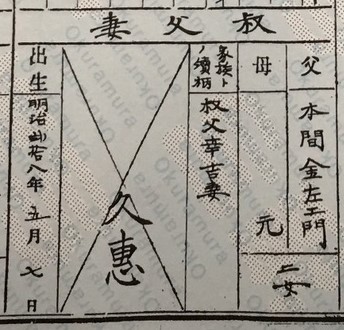 叔父妻
父 本間金左エ門
母 元
二女
家族トノ續柄 叔父幸吉妻
久惠
出生 明治拾八年五月七日
Okuramura